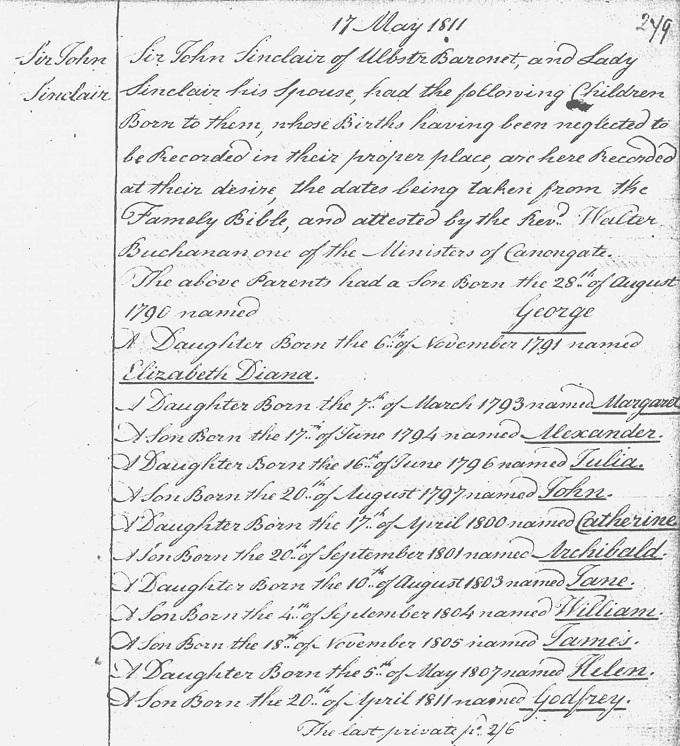 17 May 1811 249
Sir John Sir John Sinclair of Ulbstr Baronet, and Lady
Sinclair Sinclair his Spouse, had the following Children
Born to them, whose Births having been neglected to
be Recorded in their proper place, are here Recorded
at their desire, the dates being taken from the
Famely Bible, and attested by the Revd. Walter
Buchanan one of the Ministers of Canongate.
The above Parents had a Son Born the 28th of August
1790 named George
A Daughter Born the 6th of November 1791 named
Elizabeth Diana.
A Daughter Born the 7th of March 1793 named Margaret
A Son Born the 17th of June 1794 named Alexander.
A Daughter Born the 16th of June 1796 named Julia.
A Son Born the 20th of August 1797 named John.
A Daughter Born the 17th of April 1800 named Catherine
A Son Born the 20th of September 1801 named Archibald.
A Daughter Born the 10th of August 1803 named Jane.
A Son Born the 4th of September 1804 named William.
A Son Born the 18th of November 1805 named James.
A Daughter Born the 5th of May 1807 named Helen.
A Son Born the 20th of April 1811 named Godfrey.
The last private pd. 2/6